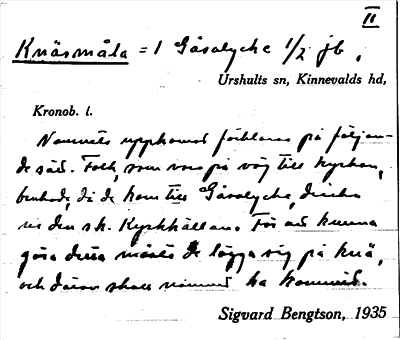 II
Knäsmåla = 1 Gåsalycke 1/2 jb,
Urshults sn, Kinnevalds hd,
Kronob. l.
Namnets uppkomst förklaras på följan-
de sätt. Folk, som voro på väg till kyrkan,
brukade, då de kom till Gåsalycke, dricka
ur den s.k. Kyrkkällan. För att kunna
göra detta måste de lägga sig på knä,
och därav skall namnet ha kommit.
Sigvard Bengtson, 1935